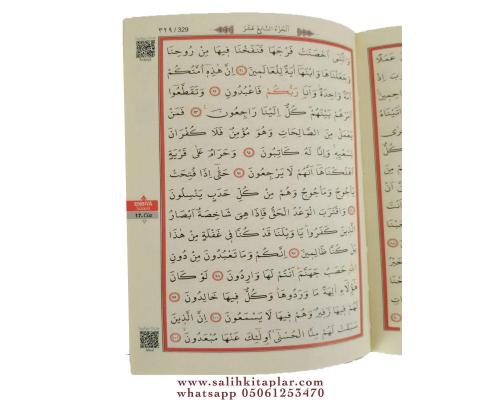 ٣٢٩ / 329
اَلْجُزْءُ السَّابِعَ عَشَرَ
وَالَّتٖٓي اَحْصَنَتْ فَرْجَهَا فَنَفَخْنَا فٖيهَا مِنْ رُوحِنَا
وَجَعَلْنَاهَا وَابْنَهَٓا اٰيَةً لِلْعَالَمٖينَ ﴿٩١﴾ اِنَّ هٰذِهٖٓ اُمَّتُكُمْ
اُمَّةً وَاحِدَةً وَاَنَا۬ رَبُّكُمْ فَاعْبُدُونِ ﴿٩٢﴾ وَتَقَطَّعُٓوا
اَمْرَهُمْ بَيْنَهُمْ كُلٌّ اِلَيْنَا رَاجِعُونَ ﴿٩٣﴾ فَمَنْ
يَعْمَلْ مِنَ الصَّالِحَاتِ وَهُوَ مُؤْمِنٌ فَلَا كُفْرَانَ
لِسَعْيِهٖ وَاِنَّا لَهُ كَاتِبُونَ ﴿٩٤﴾ وَحَرَامٌ عَلٰى قَرْيَةٍ
اَهْلَكْنَاهَٓا اَنَّهُمْ لَا يَرْجِعُونَ ﴿٩٥﴾ حَتّٰٓى اِذَا فُتِحَتْ
يَأْجُوجُ وَمَأْجُوجُ وَهُمْ مِنْ كُلِّ حَدَبٍ يَنْسِلُونَ
﴿٩٦﴾ وَاقْتَرَبَ الْوَعْدُ الْحَقُّ فَاِذَا هِيَ شَاخِصَةٌ اَبْصَارُ
الَّذٖينَ كَفَرُوا يَا وَيْلَنَا قَدْ كُنَّا فٖي غَفْلَةٍ مِنْ هٰذَا
بَلْ كُنَّا ظَالِمٖينَ ﴿٩٧﴾ اِنَّكُمْ وَمَا تَعْبُدُونَ مِنْ دُونِ
اللّٰهِ حَصَبُ جَهَنَّمَ اَنْتُمْ لَهَا وَارِدُونَ ﴿٩٨﴾ لَوْ كَانَ
هٰٓؤُ۬لَٓاءِ اٰلِهَةً مَا وَرَدُوهَا وَكُلٌّ فٖيهَا خَالِدُونَ ﴿٩٩﴾
لَهُمْ فٖيهَا زَفٖيرٌ وَهُمْ فٖيهَا لَا يَسْمَعُونَ ﴿١٠٠﴾ اِنَّ الَّذٖينَ
سَبَقَتْ لَهُمْ مِنَّا الْحُسْنٰٓى اُو۬لٰٓئِكَ عَنْهَا مُبْعَدُونَ ﴿١٠١﴾
ENBİYA
17. Cüz
www.salihkitaplar.com
whatsapp 05061253470